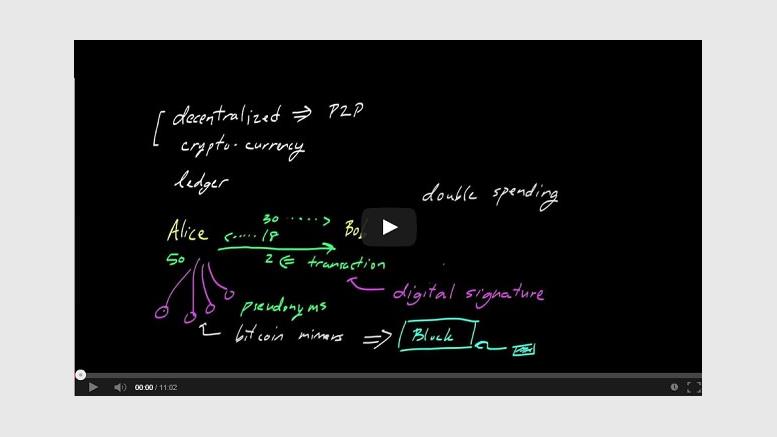 decentralized ⇒ P2P
crypto-currency
ledger
double spending
Alice 30 Bob
18
50 2 ⇐ transaction
digital signature
pseudonyms
bitcoin miners ⇒ Block
00:00 / 11:02